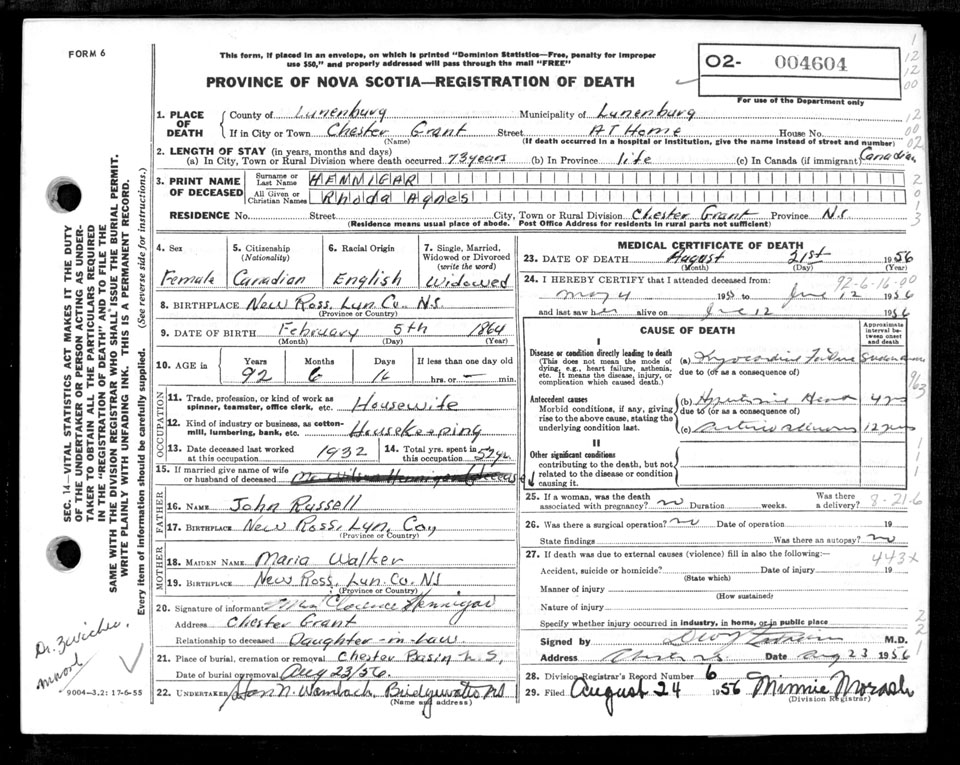 FORM 6
This form, if placed in an envelope, on which is printed "Dominion Statistics—Free, penalty for improper
use $50," and properly addressed will pass through the mail "FREE"
PROVINCE OF NOVA SCOTIA—REGISTRATION OF DEATH
O2- 004604
For use of the Department only
1. PLACE OF DEATH
County of Lunenburg Municipality of Lunenburg
If in City or Town Chester Grant Street AT Home House No.
(Name) (If death occurred in a hospital or institution, give the name instead of street and number)
2. LENGTH OF STAY (in years, months and days)
(a) In City, Town or Rural Division where death occurred 73 years (b) In Province life (c) In Canada (if immigrant) Canadian
3. PRINT NAME OF DECEASED
Surname or Last Name HENNIGAR
All Given or Christian Names Rhoda Agnes
RESIDENCE No. Street City, Town or Rural Division Chester Grant Province N.S
(Residence means usual place of abode. Post Office Address for residents in rural parts not sufficient)
4. Sex Female
5. Citizenship (Nationality) Canadian
6. Racial Origin English
7. Single, Married, Widowed or Divorced (write the word) Widowed
8. BIRTHPLACE New Ross, Lun. Co. N.S.
(Province or Country)
9. DATE OF BIRTH February 5th 1864
(Month) (Day) (Year)
10. AGE in Years 92 Months 6 Days 16 If less than one day old hrs. or min.
OCCUPATION
11. Trade, profession, or kind of work as spinner, teamster, office clerk, etc. Housewife
12. Kind of industry or business, as cotton-mill, lumbering, bank, etc. Housekeeping
13. Date deceased last worked at this occupation 1932
14. Total yrs. spent in this occupation 52 yr.
15. If married give name of wife or husband of deceased
FATHER
16. NAME John Russell
17. BIRTHPLACE New Ross, Lun, Coy
MOTHER
18. MAIDEN NAME Maria Walker
19. BIRTHPLACE New Ross, Lun. Co. NS
(Province or Country)
20. Signature of informant Mrs Clarence Hennigar
Address Chester Grant
Relationship to deceased Daughter-in-law
21. Place of burial, cremation or removal Chester Basin N.S,
Date of burial or removal Aug 23/56.
22. UNDERTAKER Wambach, Bridgewater NS
(Name and address)
MEDICAL CERTIFICATE OF DEATH
23. DATE OF DEATH August 21st 1956
(Month) (Day) (Year)
24. I HEREBY CERTIFY that I attended deceased from: 92-6-16-00
May 4 to June 12 1956
and last saw her alive on June 12 1956
CAUSE OF DEATH
Approximate interval between onset and death
I
Disease or condition directly leading to death
(This does not mean the mode of dying, e.g., heart failure, asthenia, etc. It means the disease, injury, or complication which caused death.)
(a) Myocardial Failure
due to (or as a consequence of)
Antecedent causes
Morbid conditions, if any, giving rise to the above cause, stating the underlying condition last.
(b) 4 yrs
due to (or as a consequence of)
(c) 12 years
II
Other significant conditions
contributing to the death, but not related to the disease or condition causing it.
25. If a woman, was the death associated with pregnancy? no Duration weeks. Was there a delivery? 8-21-6
26. Was there a surgical operation? no Date of operation 19
State findings Was there an autopsy? no
27. If death was due to external causes (violence) fill in also the following:— 443x
Accident, suicide or homicide? Date of injury 19
(State which)
Manner of injury
(How sustained)
Nature of injury
Specify whether injury occurred in industry, in home, or in public place
Signed by M.D.
Address Chester N.S. Date Aug 23 1956
28. Division Registrar's Record Number 6
29. Filed August 24 1956 Minnie Morash
(Division Registrar)
SEC. 14—VITAL STATISTICS ACT MAKES IT THE DUTY
OF THE UNDERTAKER OR PERSON ACTING AS UNDER-
TAKER TO OBTAIN ALL THE PARTICULARS REQUIRED
IN THE "REGISTRATION OF DEATH" AND TO FILE THE
SAME WITH THE DIVISION REGISTRAR WHO SHALL ISSUE THE BURIAL PERMIT.
WRITE PLAINLY WITH UNFADING INK. THIS IS A PERMANENT RECORD.
Every item of information should be carefully supplied. (See reverse side for instructions.)
Dr. Zwicker,
9004-3.2: 17-6-55